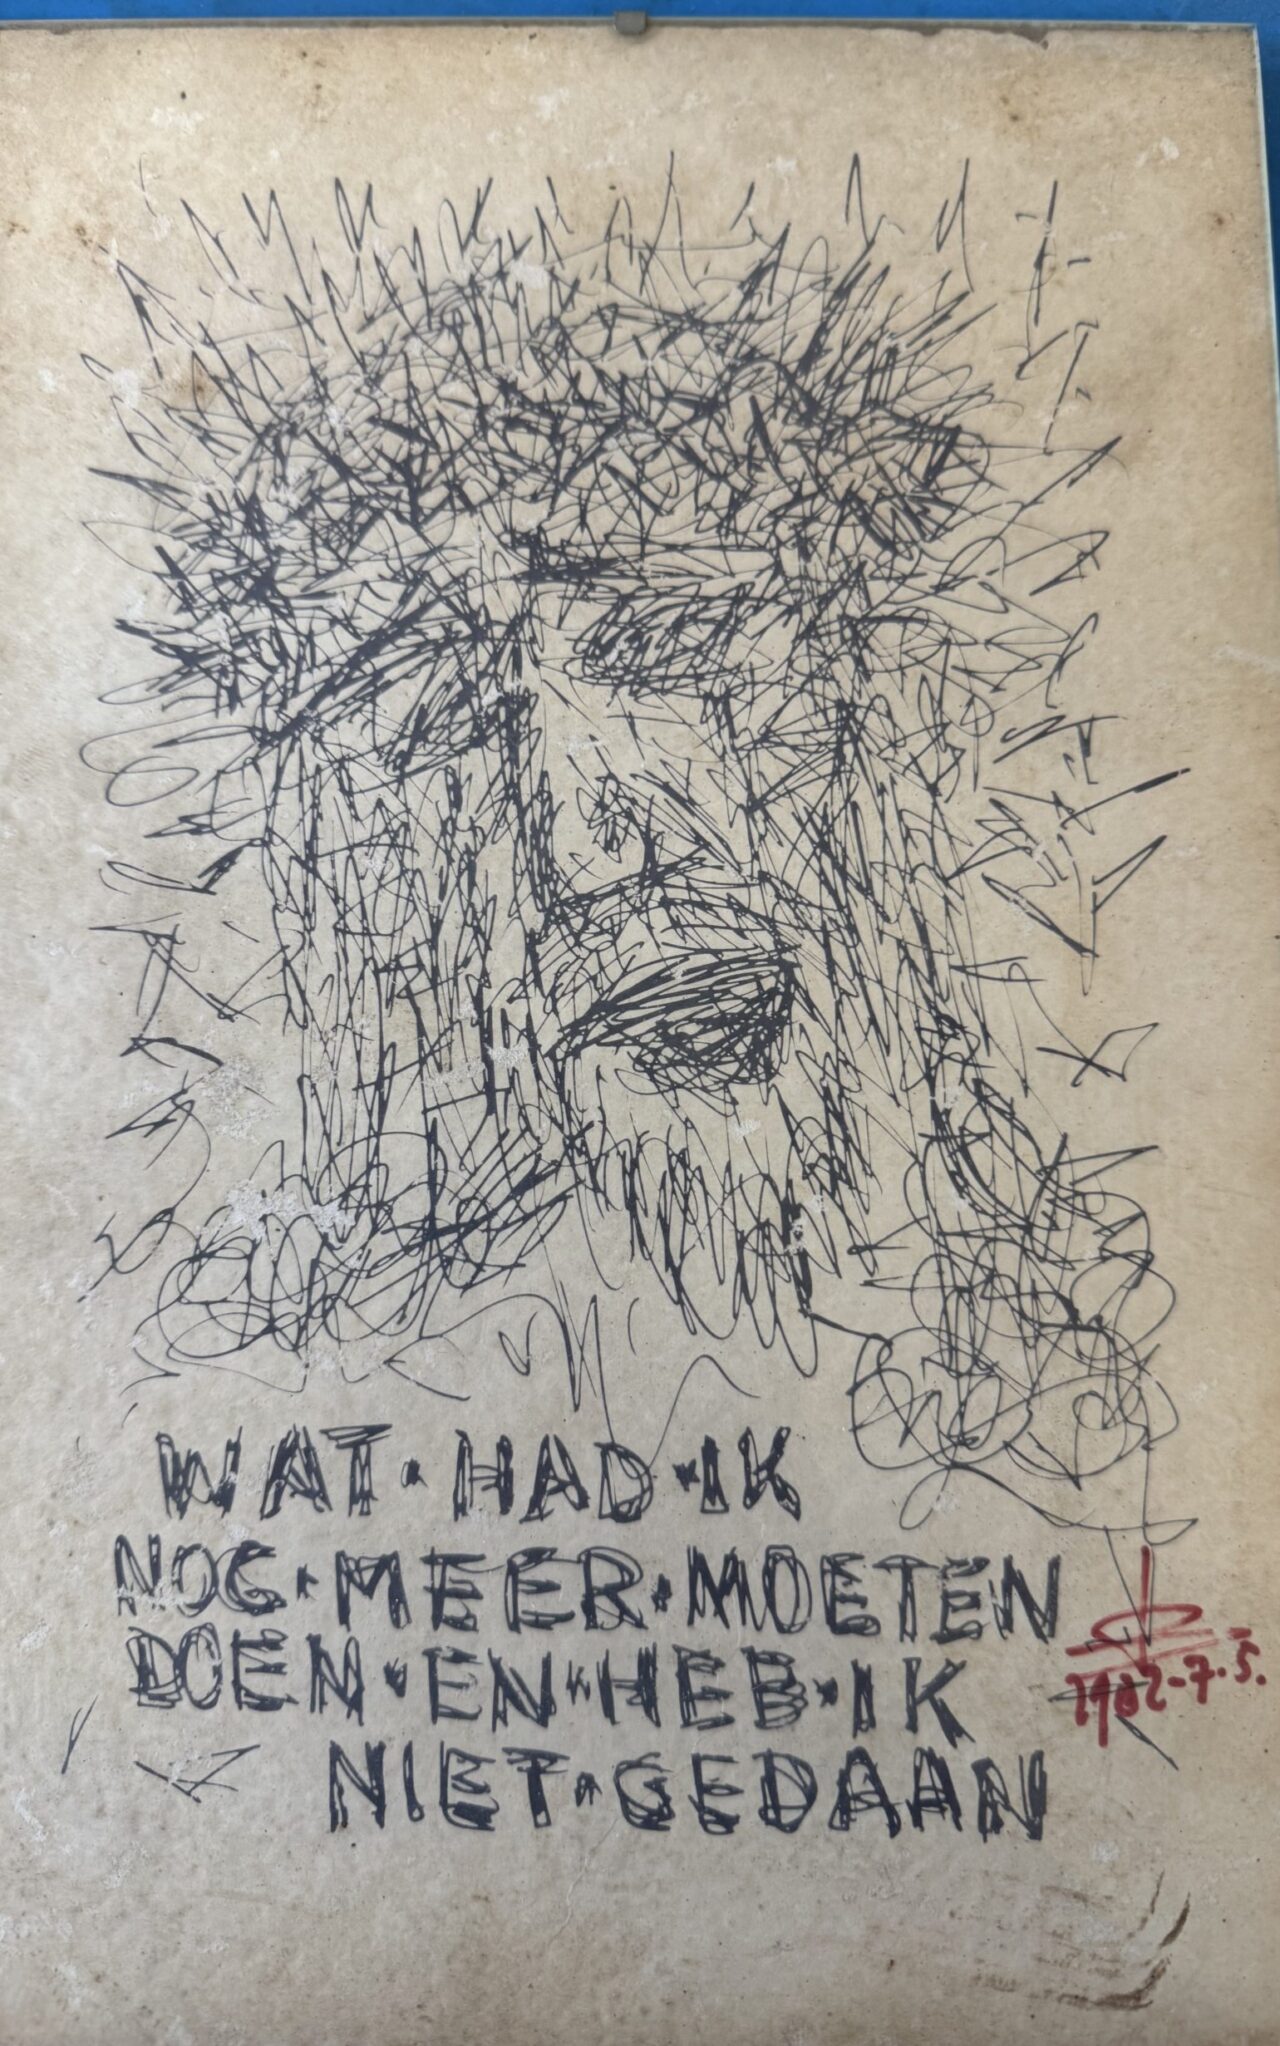 WAT·HAD·IK
NOG·MEER·MOETEN
DOEN·EN·HEB·IK
NIET·GEDAAN
1982-7-5.